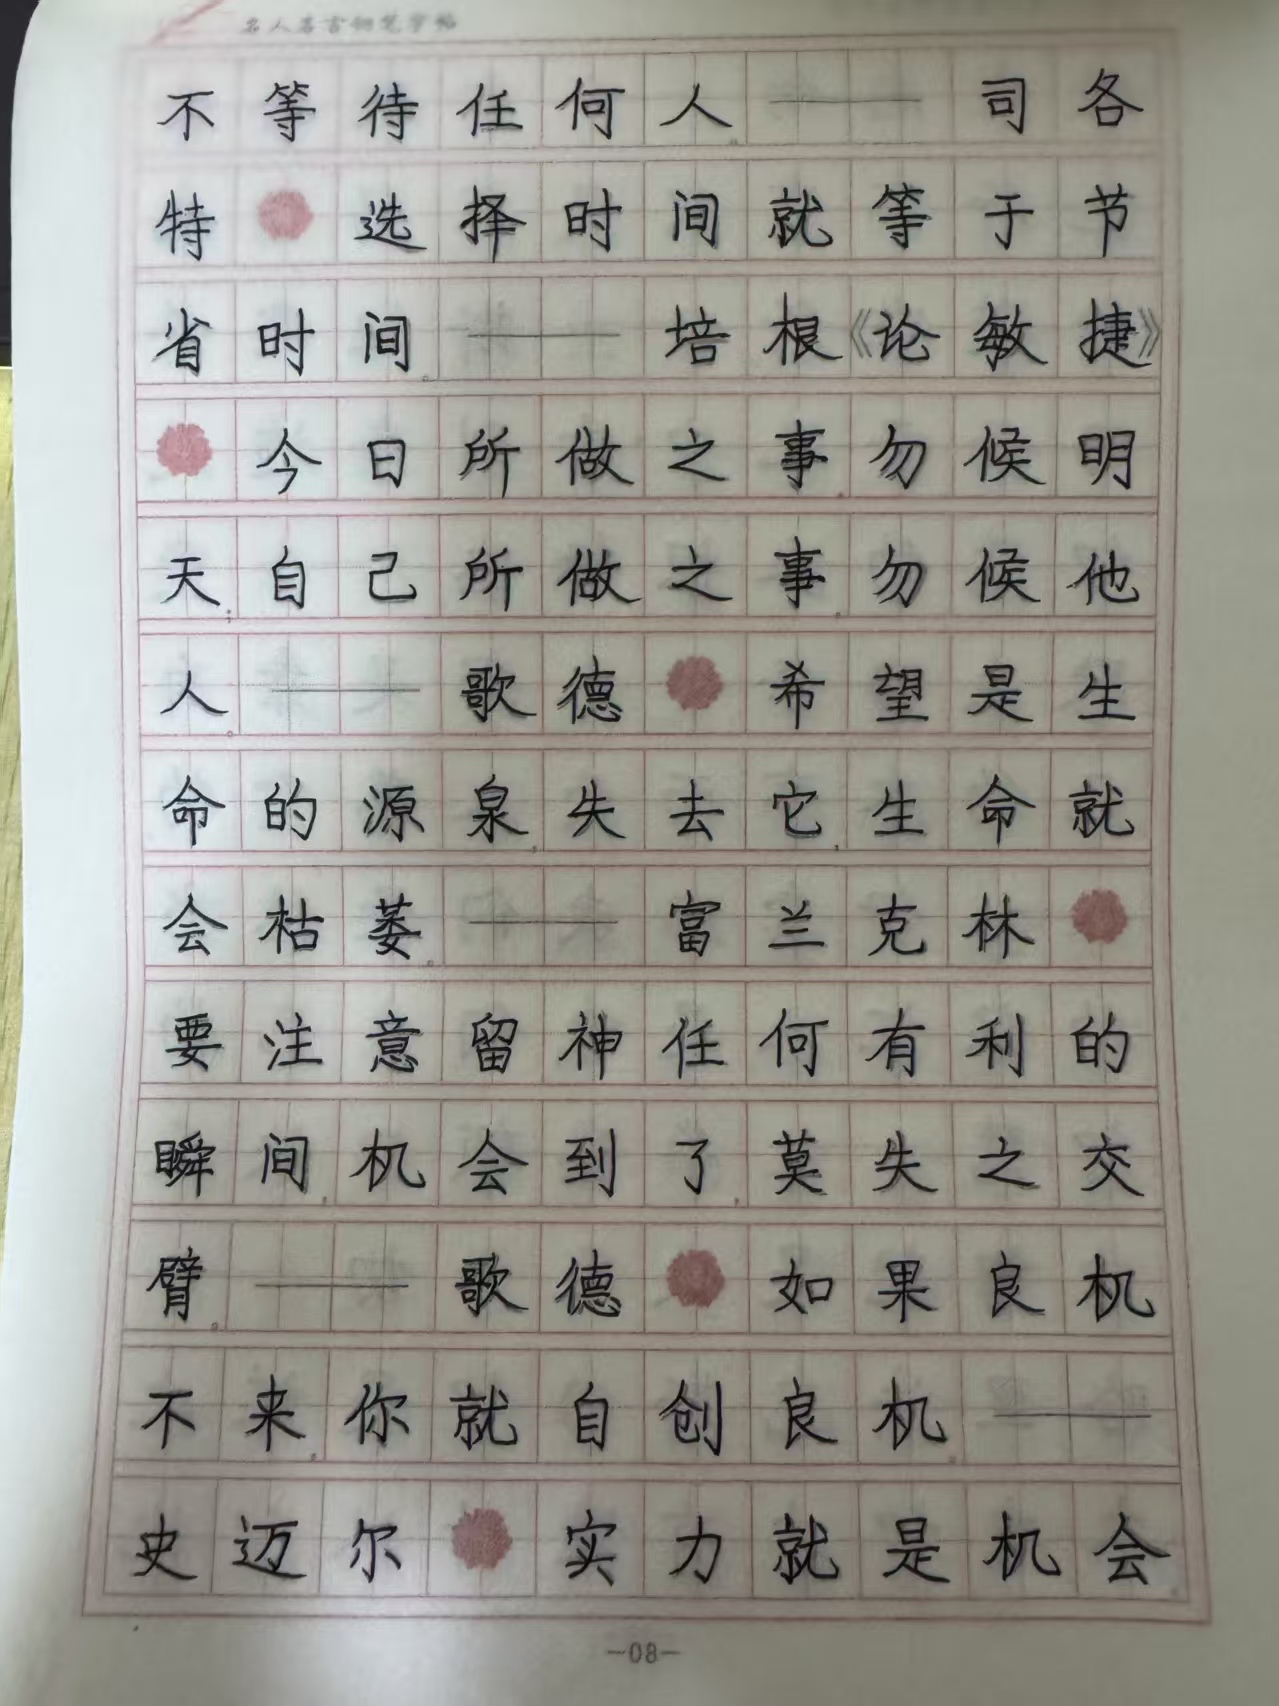 名人名言钢笔字帖
不等待任何人。——司各
特 选择时间就等于节
省时间。——培根《论敏捷》
今日所做之事,勿候明
天;自己所做之事,勿候他
人。——歌德 希望是生
命的源泉,失去它,生命就
会枯萎。——富兰克林
要注意留神任何有利的
瞬间,机会到了,莫失之交
臂。——歌德 如果良机
不来,你就自创良机。——
史迈尔 实力就是机会。
—08—